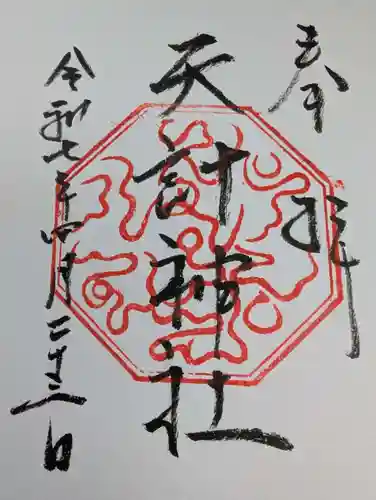 奉拝
天計神社
令和七年四月二十三日